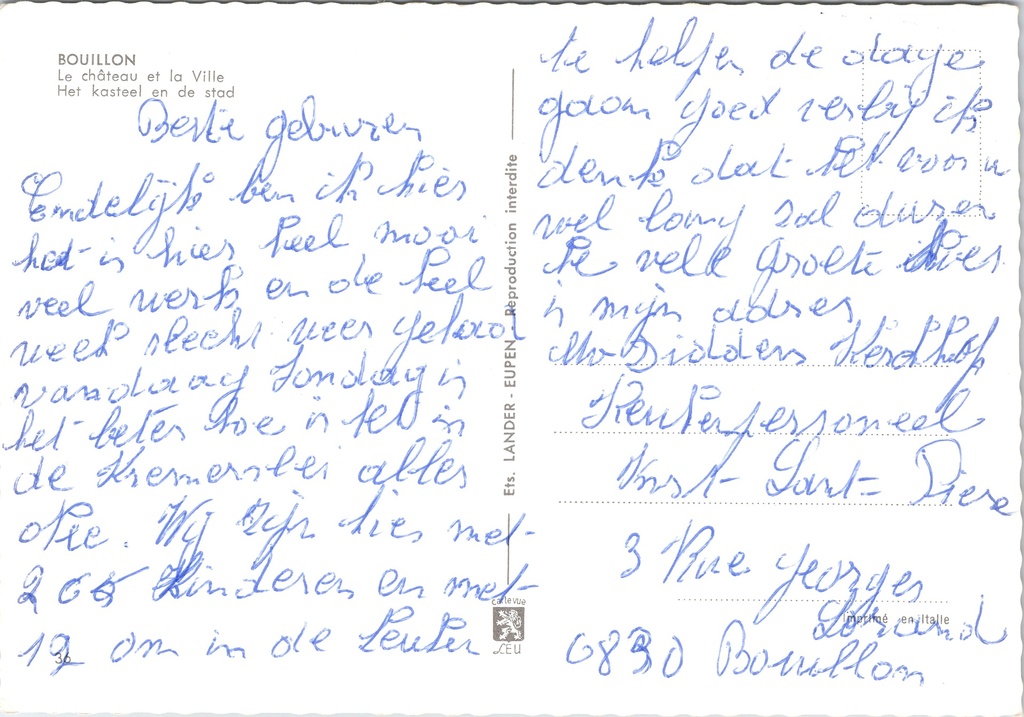 BOUILLON
Le château et la Ville
Het kasteel en de stad
Beste geburen
Eindelijk ben ik hier
het is hier heel mooi
veel werk en de heel
week slecht weer gehad
vandaag Zondag is
het beter hoe is het in
de alles
okee. Wij zijn hier met
266 Kinderen en met
19 om in de keuken
te helpen de dage
gaan goed verbij ik
denk dat het voor u
wel lang zal duren
de vele groete hier
is mijn adres
Kerkhof
Keukenpersoneel
Inst Saint Piere
3 Rue Georges
Lorand
6830 Bouillon
Ets. LANDER - EUPEN Reproduction interdite
cartevue
LEU
Imprimé en Italie
36